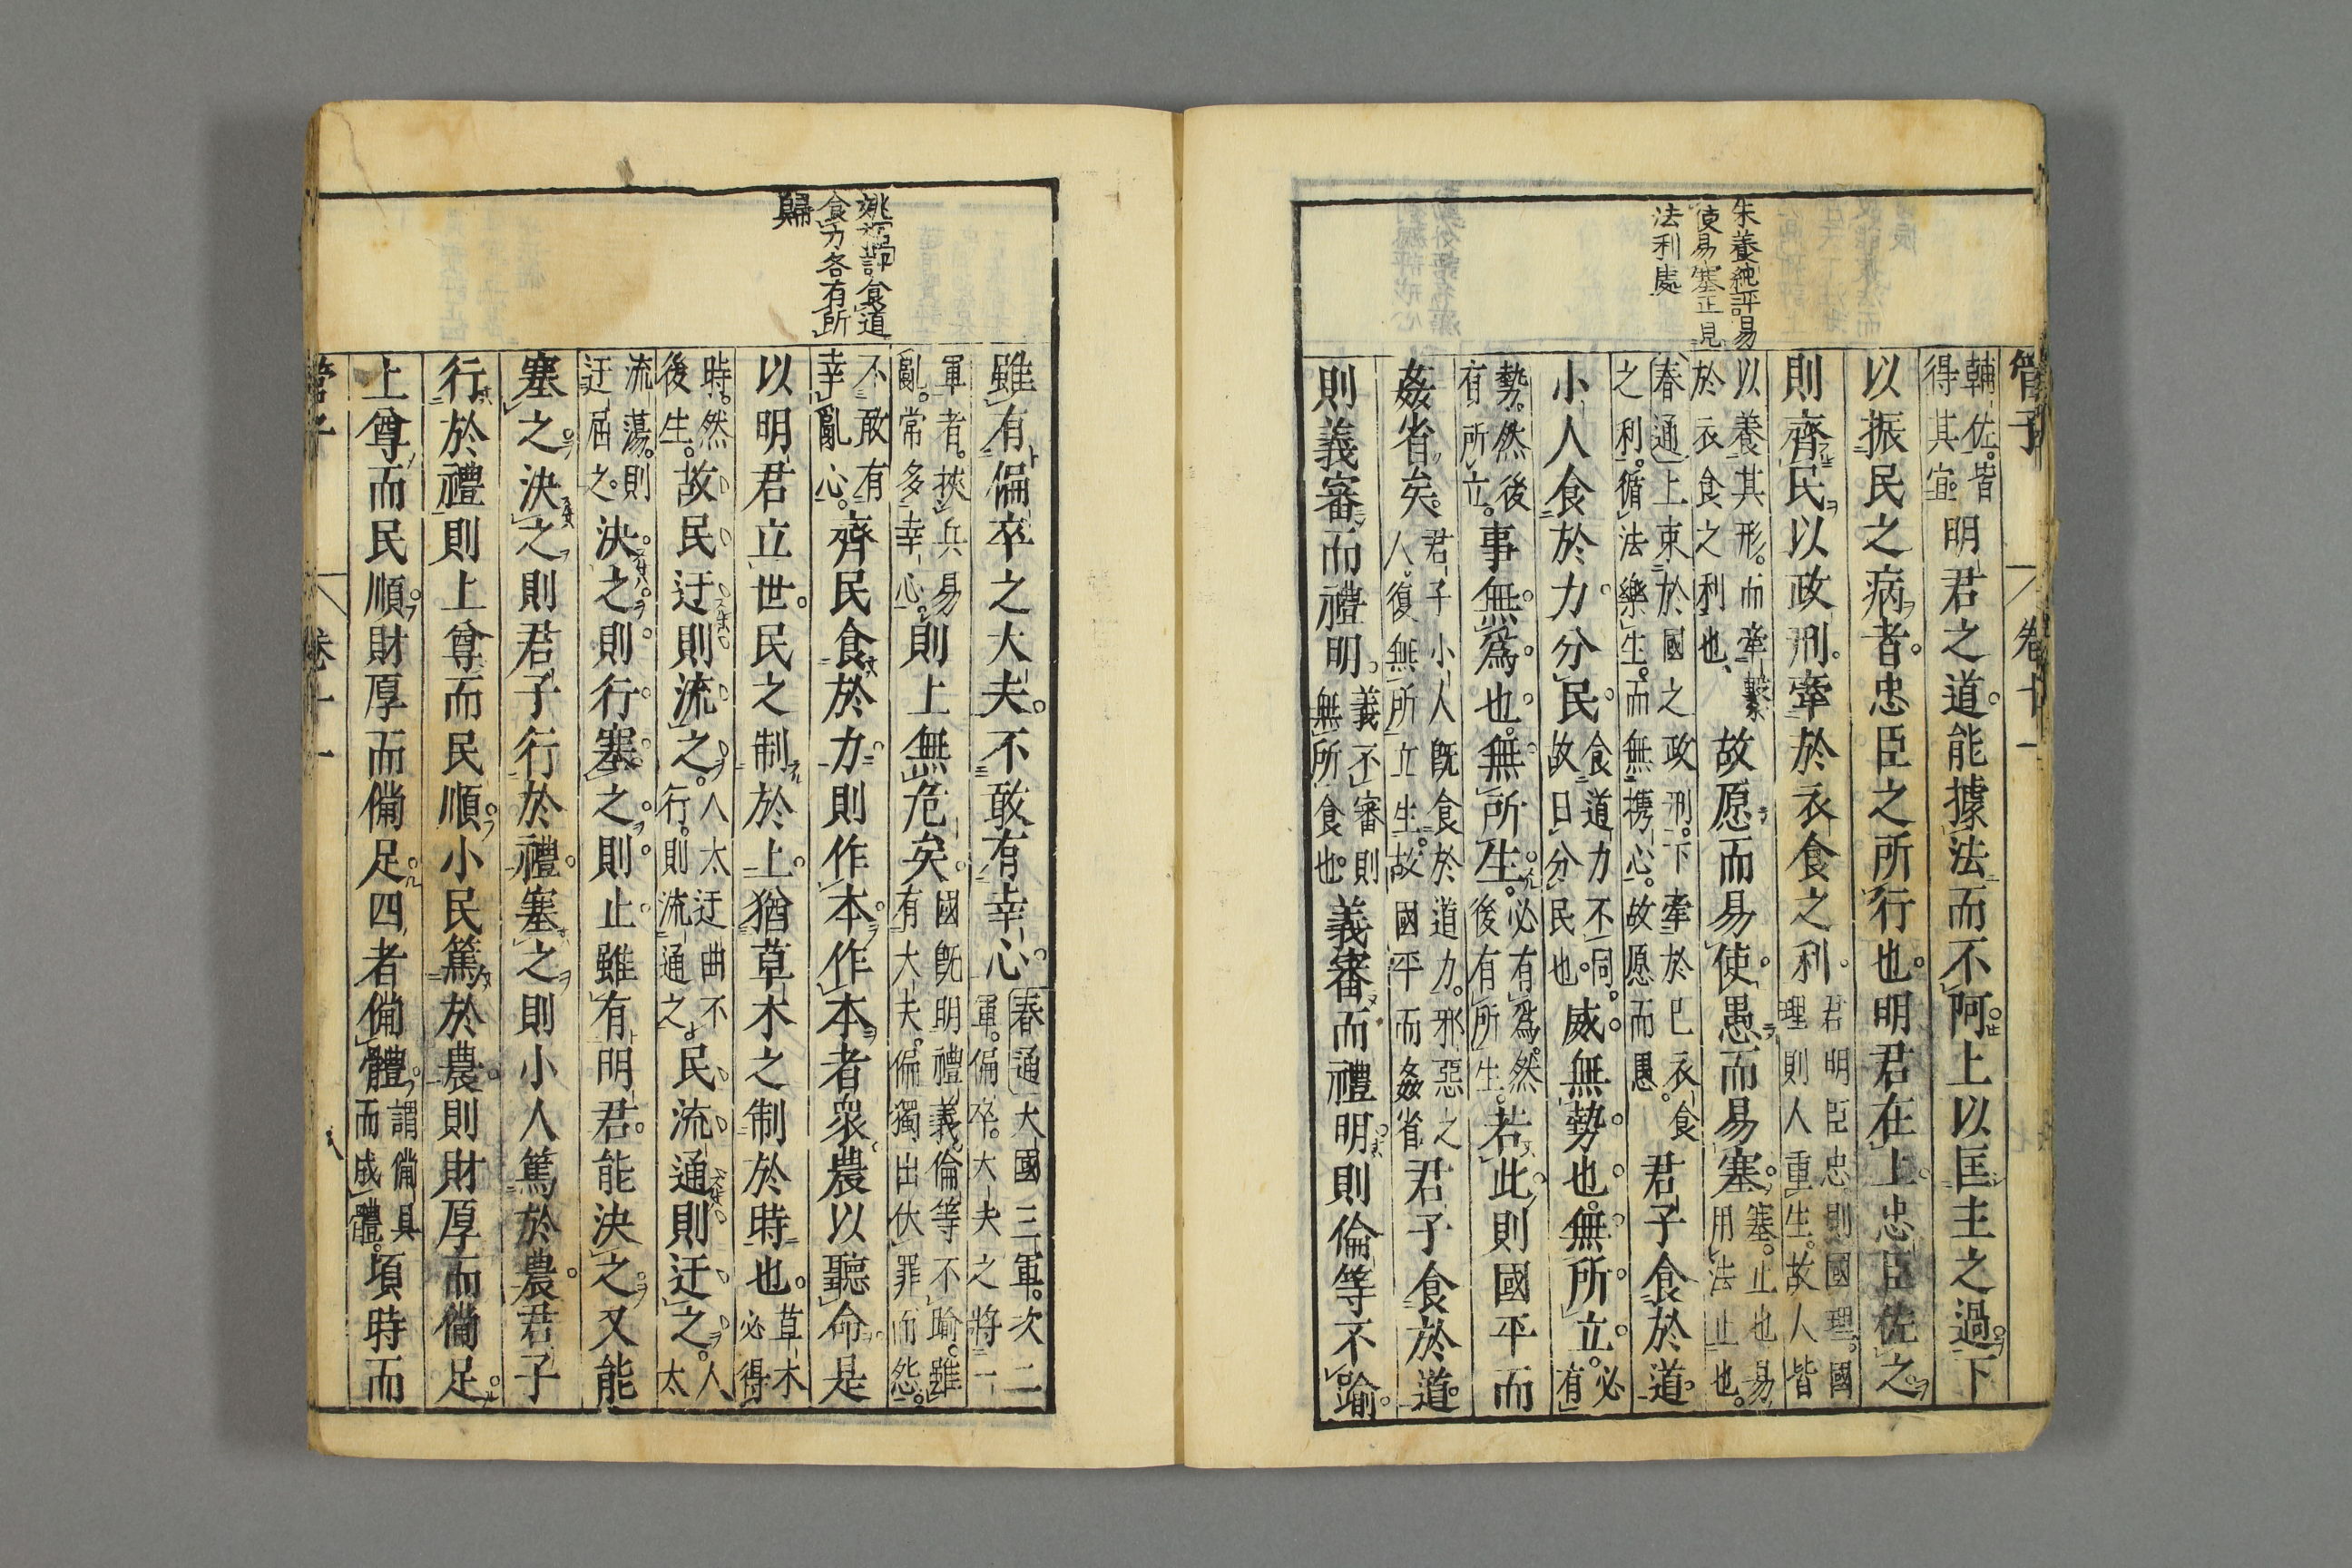 管子
卷十一
朱養純評易
使易塞正見
法利處
輔佐。皆
得其宜。
明君之道。能據法而不阿。上以匡主之過。下
以振民之病者。忠臣之所行也。明君在上。忠臣佐之。
則齊民以政刑。牽於衣食之利。
君明臣忠。則國理。國
理則人重生。故人皆
以養其形。而牽繫
於衣食之利也。
故愿而易使。愚而易塞。
塞。止也。易
用法止也。
春通上束於國之政刑。下牽於巳衣食
之利。循法樂生。而無攜心。故愿而愚。
君子食於道。
小人食於力。分民。
食道力不同。
故曰分民也。
威無勢也。無所立。
必
有
勢。然後
有所立。
事無爲也。無所生。
必有爲。然
後有所生。
若此。則國平而
姦省矣。
君子小人既食於道力。邪惡之
人。復無所立生。故國平而姦省
君子食於道。
則義審而禮明。
義不審則
無所食也。
義審而禮明。則倫等不踰。
姚端恪評食道
食力各有所
歸
雖有偏卒之大夫。不敢有幸心。
春通大國三軍。次二
軍。偏卒。大夫之將一
軍者。挾兵易
亂。常多幸心。
則上無危矣。
國既明禮義。倫等不踰。雖
有大夫。偏獨出伏罪而怨。
不敢有
幸亂心。
齊民食於力則作本。作本者衆。農以聽命。是
以明君立世。民之制於上。猶草木之制於時也。
草木
必得
時。然
後生。
故民迂則流之。
人太迂曲不
行。則流通之。
民流通則迂之。
人
太
流蕩。則
迂屈之。
決之則行。塞之則止。雖有明君。能決之。又能
塞之。決之則君子行於禮。塞之則小人篤於農。君子
行於禮。則上尊而民順。小民篤於農。則財厚而備足。
上尊而民順。財厚而備足。四者備體。
謂備具
而成體。
頃時而
管子
卷十一